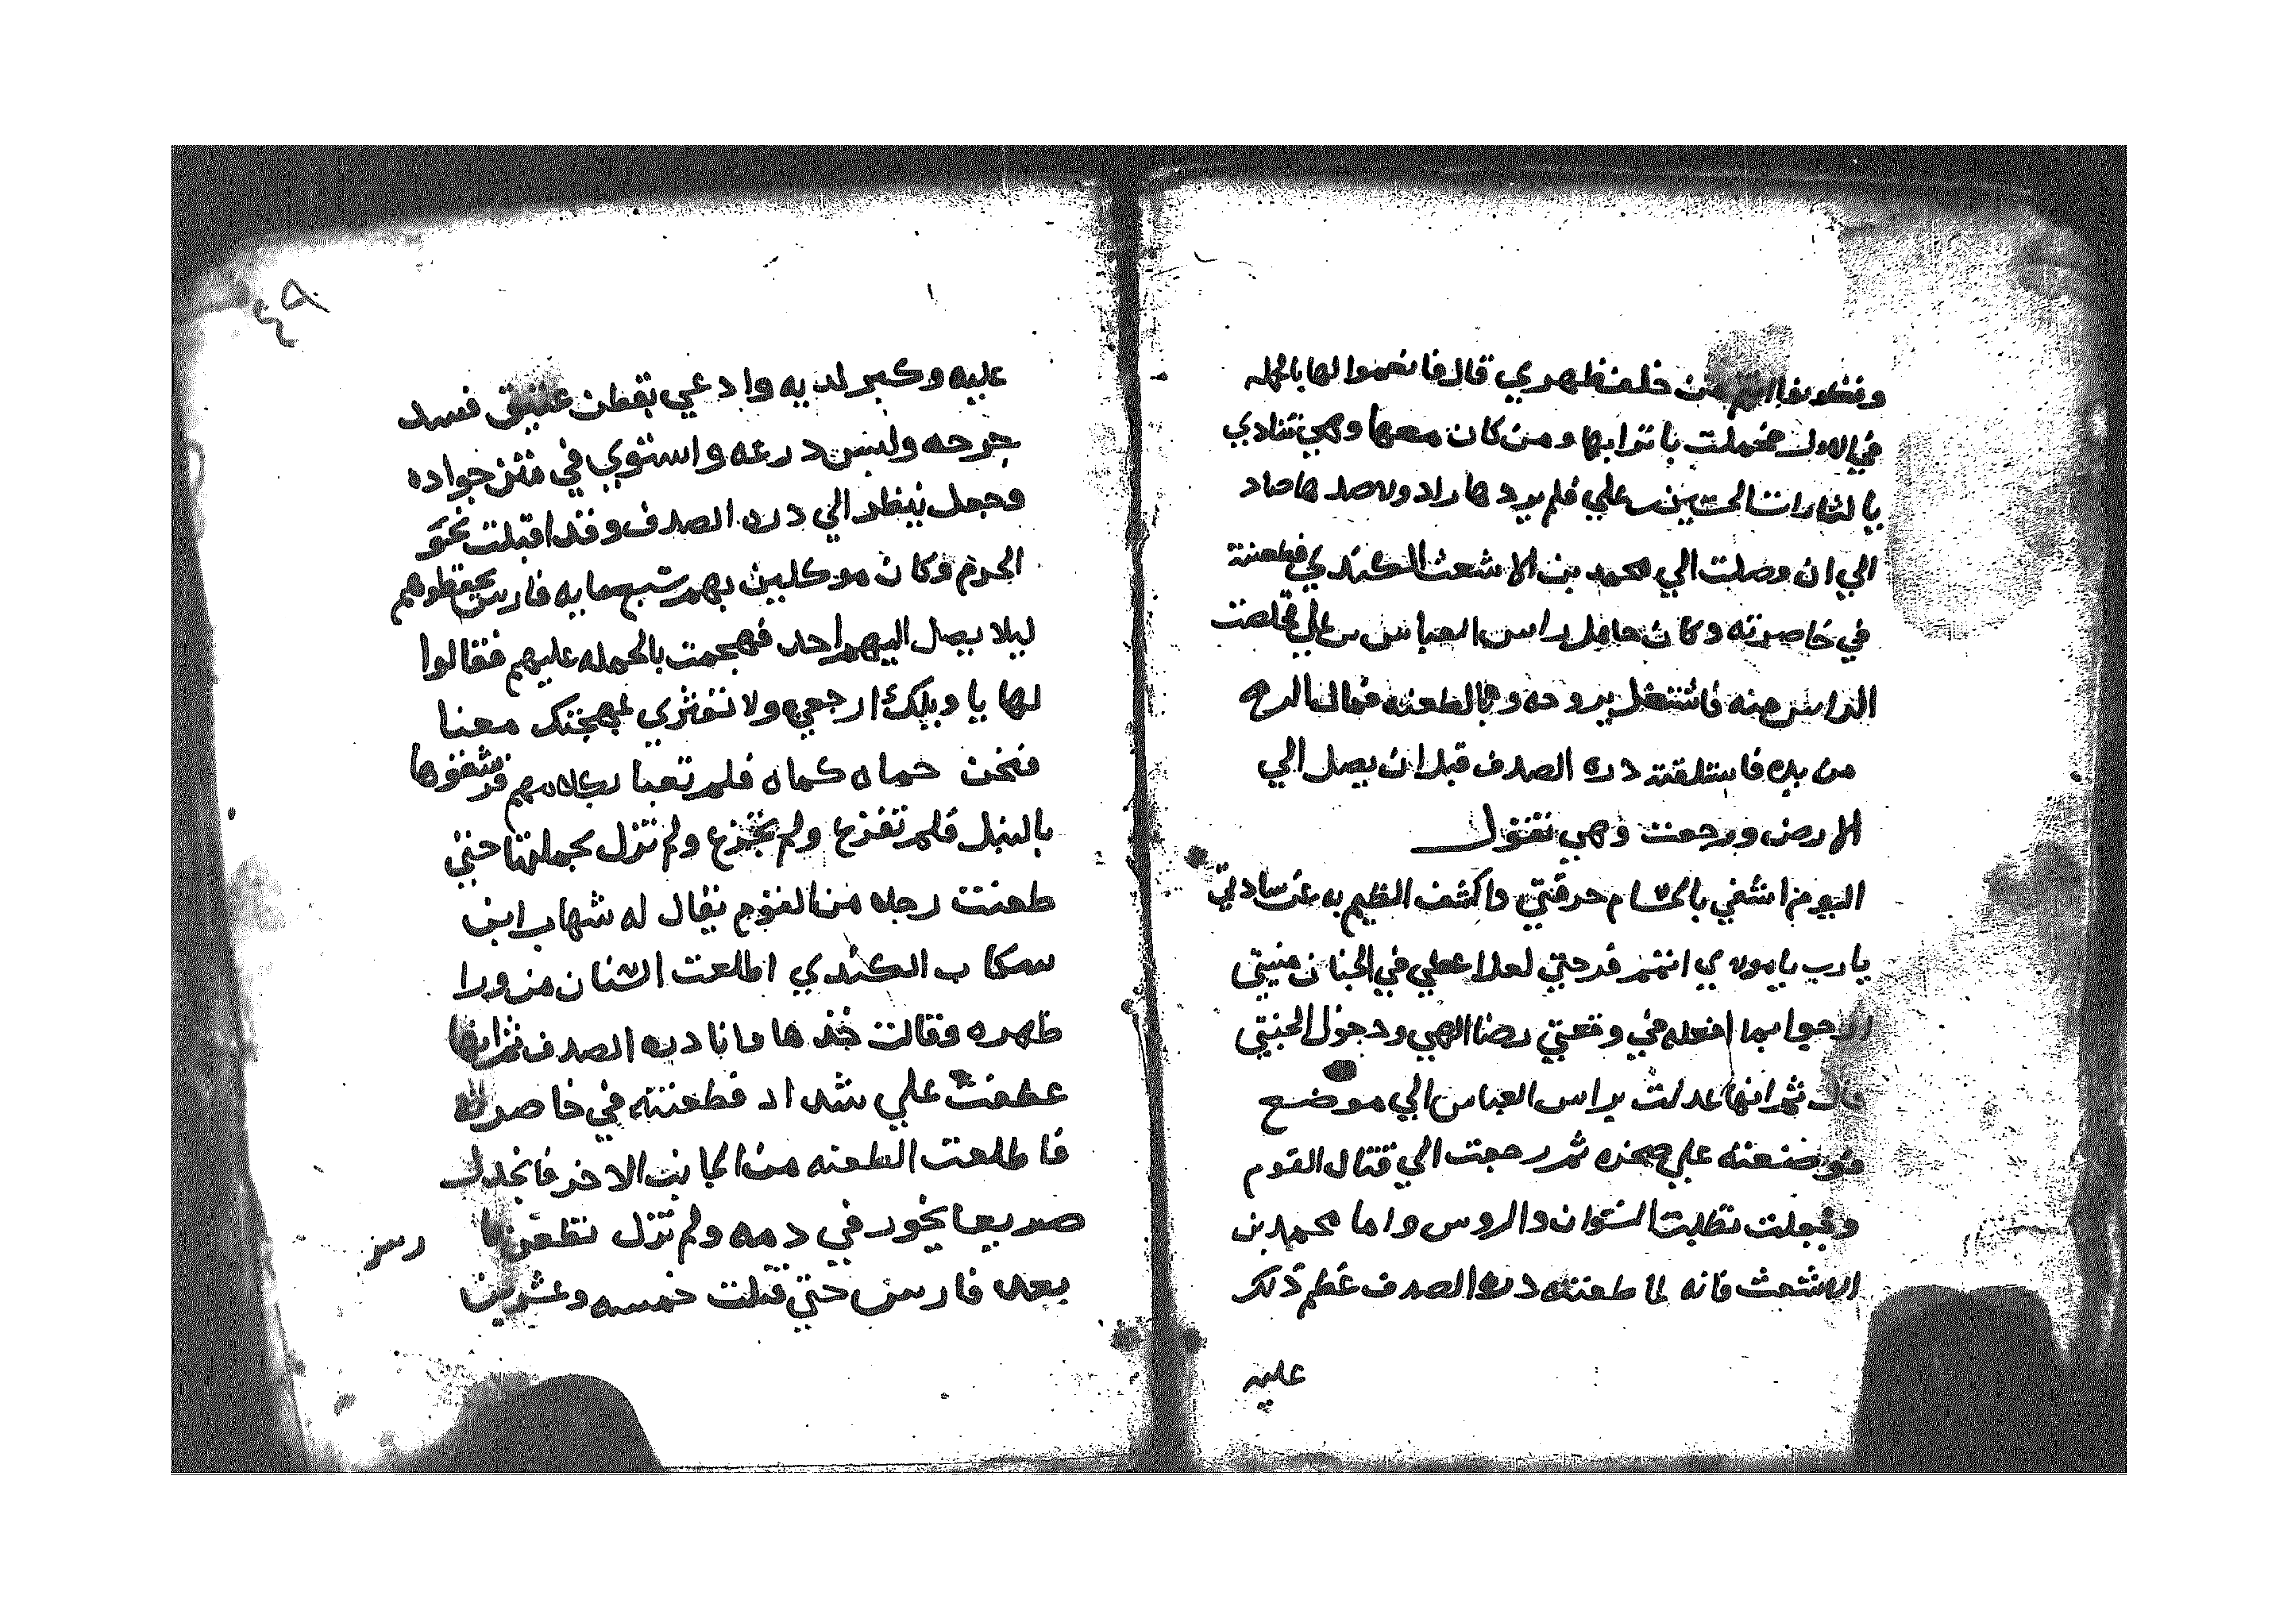 خلف ظهري قال فانعموا لها بالجمله
باترابها ومن كان معها وهي تنادي
يا لثارات الحسين بن علي فلم يردها راد ولا صدها صاد
الي ان وصلت الي محمد بن الاشعث الكندي فطعنته
في خاصرته وكان حامل راس العباس بن علي فخلصت
الراس منه فاشتغل بروحه وبالطعنه فمال الرمح
من يده فاستلقته دره الصدف قبل ان يصل الي
الارض ورجعت وهي تقول
اليوم اشفي بالحسام حرقتي واكشف الظيم به عن سادتي
يا رب يا مولاي اتمم فرحتي لعلا اعطي في الجنان منيتي
ارجوا بما افعله في وقعتي رضا الهي ودخول الجنتي
قال ثم انها عدلت براس العباس الي موضع
فوضعته علي صخره ثم رجعت الي قتال القوم
وجعلت تطلب النسوان والروس واما محمد بن
الاشعث فانه لما طعنته دره الصدف عظم ذلك
عليه
٤٩
عليه وكبر لديه وادعي بقطن عتيق فسد
جرحه ولبس درعه واستوي في متن جواده
وجعل ينظر الي دره الصدف وقد اقبلت نحو
الحرم وكان موكلين بهم سبعمايه فارس يحفظوهم
ليلا يصل اليهم احد فهجمت بالحمله عليهم فقالوا
لها يا ويلك ارجعي ولا تغتري بمهجتك معنا
فنحن حماه كماه فلم تعبا بكلامهم فرشقوها
بالنبل فلم تفزع ولم تجزع ولم تزل بجملتها حتي
طعنت رجلا من القوم يقال له شهاب ابن
سكاب الكندي اطلعت السنان من ورا
ظهره وقالت خذها وانا دره الصدف ثم انها
عطفت علي شداد فطعنته في خاصرته
فاطلعت الطعنه من الجانب الاخر فانجدل
صريعا يخور في دمه ولم تزل تطعن
بعد فارس حتي قتلت خمسه وعشرين